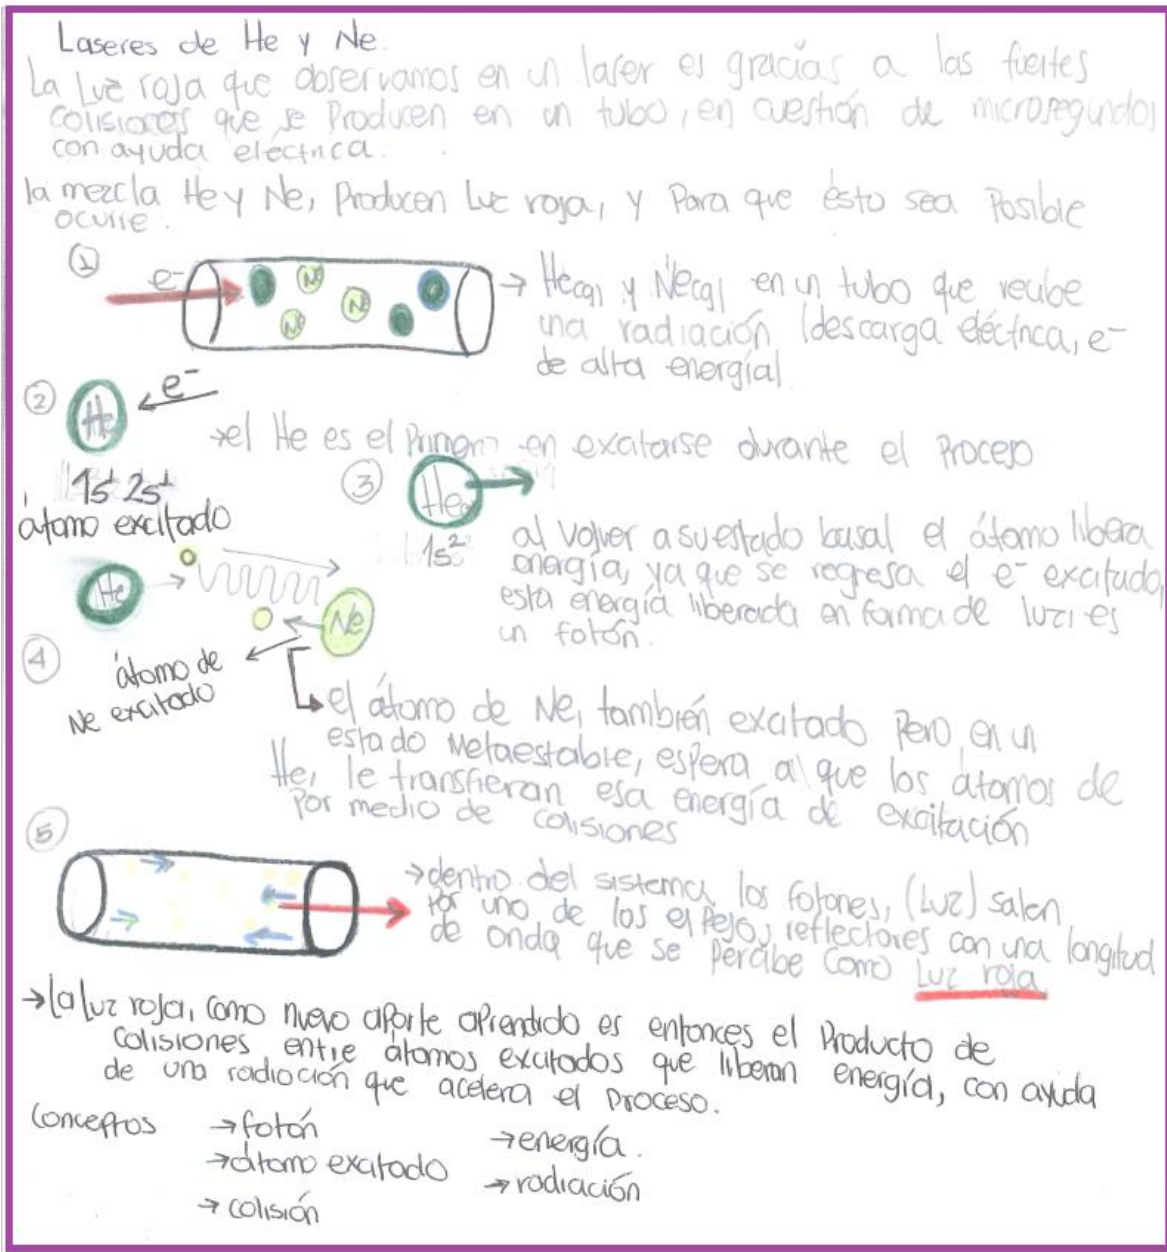 Laseres de He y Ne.
La Luz roja que observamos en un laser es gracias a las fuertes
colisiones que se Producen en un tubo, en cuestión de microsegundos
con ayuda eléctrica.
la mezcla He y Ne, Producen Luz roja, y Para que ésto sea Posible
ocurre:
① e-
Ne Ne Ne
→ He(g) y Ne(g) en un tubo que recibe
una radiación (descarga eléctrica, e-
de alta energía)
② He e-
→ el He es el Primero en excitarse durante el Proceso
1s¹ 2s¹
átomo excitado
③ He
1s²
al volver a su estado basal el átomo libera
energía, ya que se regresa el e- excitado,
esta energía liberada en forma de luz, es
un fotón.
He Ne
④ átomo de
Ne excitado
el átomo de Ne, también excitado Pero, en un
estado Metaestable, espera a que los átomos de
He, le transfieran esa energía de excitación
Por medio de colisiones
⑤
→ dentro del sistema los fotones, (Luz) salen
Por uno de los espejos reflectores con una longitud
de onda que se percibe como Luz roja
→ la luz roja, como nuevo aporte aprendido es entonces el Producto de
colisiones entre átomos excitados que liberan energía, con ayuda
de una radiación que acelera el proceso.
Conceptos → fotón → energía.
→ átomo excitado → radiación
→ colisión